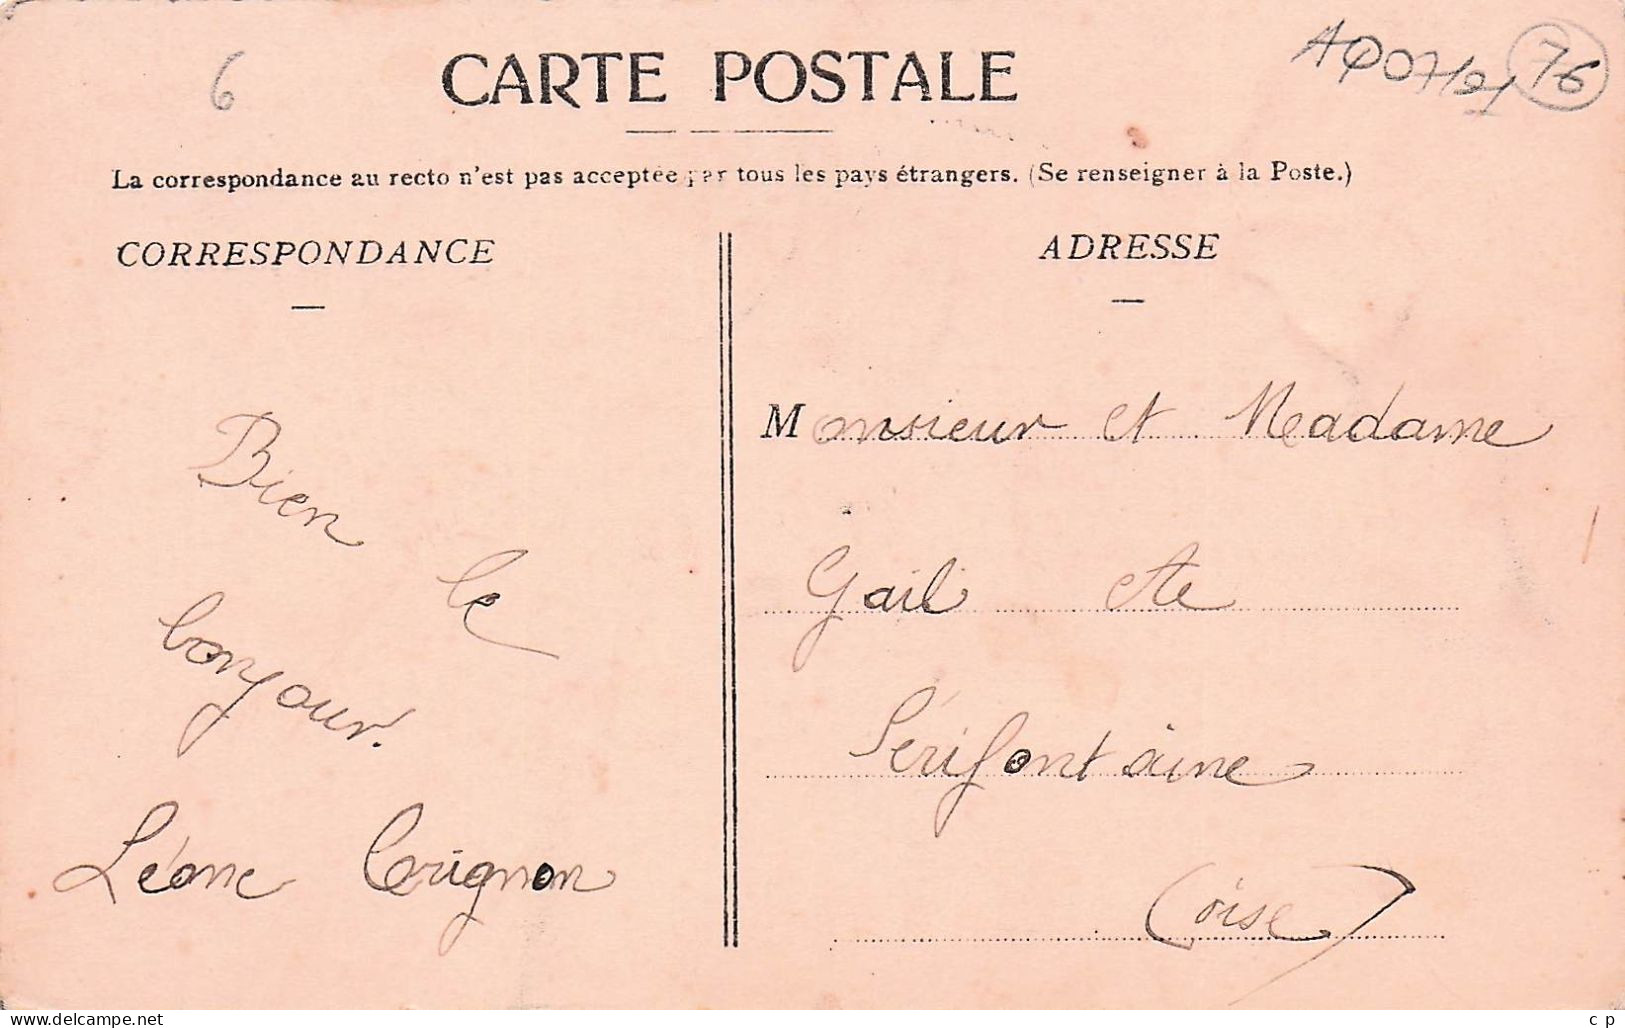 6
CARTE POSTALE
AQ07/21 76
La correspondance au recto n'est pas acceptée par tous les pays étrangers. (Se renseigner à la Poste.)
CORRESPONDANCE
ADRESSE
Bien le
bonjour.
Léone Crignon
Monsieur et Madame
Gail
Sérifontaine
(oise)
www.delcampe.net
c p